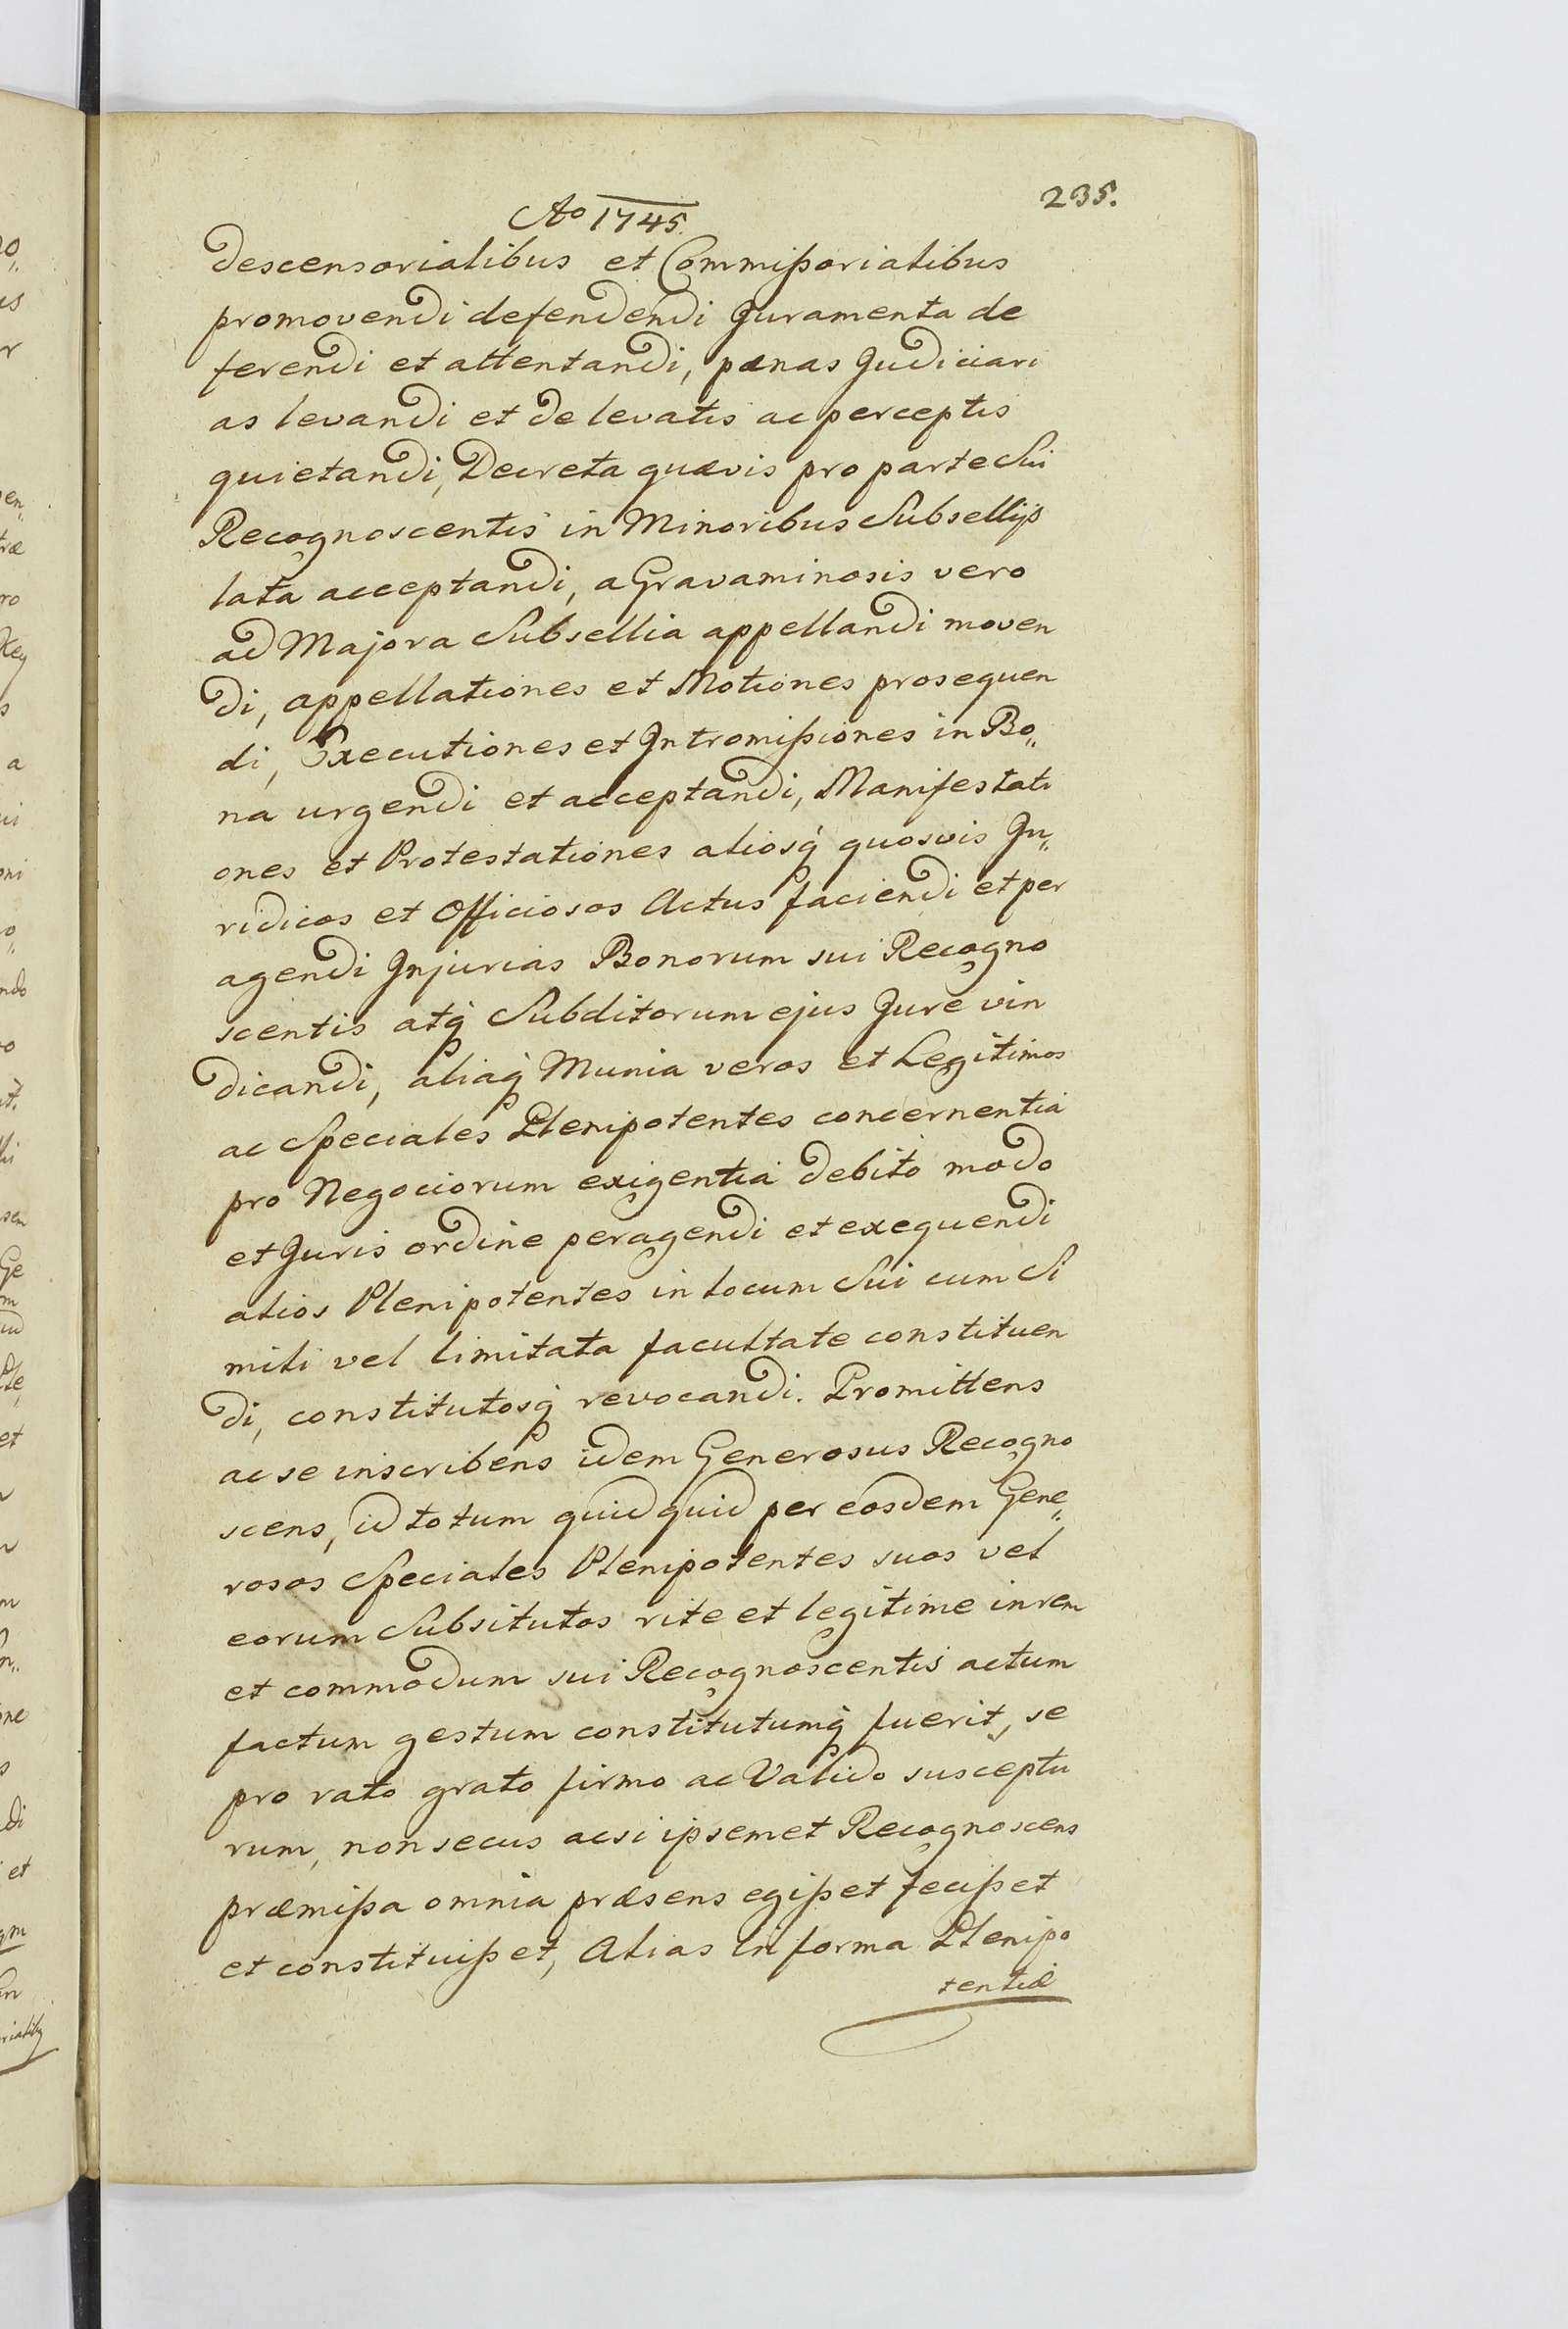 235.
Ao 1745.
descensorialibus et Commißorialibus
promovendi defendendi Juramenta de
ferendi et attentandi, pænas Judiciari
as levandi et de levatis ac perceptis
quietandi, Decreta quævis pro parte Sui
Recognoscentis in Minoribus Subsellijs
lata acceptandi, a Gravaminosis vero
ad Majora Subsellia appellandi moven
di, appellationes et Motiones prosequen
di, Executiones et Intromißiones in Bo„
na urgendi et acceptandi, Manifestati
ones et Protestationes aliosq́ quosvis Ju„
ridicos et Officiosos Actus faciendi et per
agendi Injurias Bonorum sui Recogno
scentis atq́ Subditorum ejus Jure vin
dicandi, aliaq́ Munia veros et Legitimos
ac Speciales Plenipotentes concernentia
pro Negociorum exigentia debito modo
et Juris ordine peragendi et exequendi
alios Plenipotentes in locum Sui cum Si
mili vel limitata facultate constituen
di, constitutosq́ revocandi. Promittens
ac se inscribens idem Generosus Recogno
scens, id totum quidquid per eosdem Gene„
rosos Speciales Plenipotentes suos vel
eorum Subsitutos rite et legitime in rem
et commodum sui Recognoscentis actum
factum gestum constitutumq́ fuerit, se
pro rato grato firmo ac Valido susceptu
rum, non secus acsi ipsemet Recognoscens
præmißa omnia præsens egißet fecißet
et constituißet, Alias in forma Plenipo
tentiæ